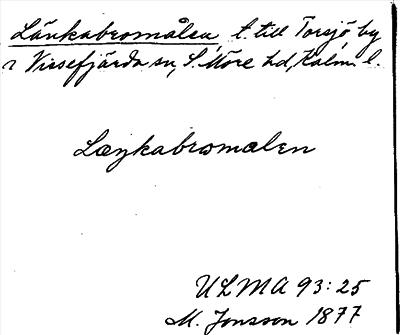 Länkabromålen, t. till Torsjö by
i Vissefjärda sn, S. Möre hd, Kalm. l.
Læŋkabromalen
ULMA 93:25
M. Jonsson 1877